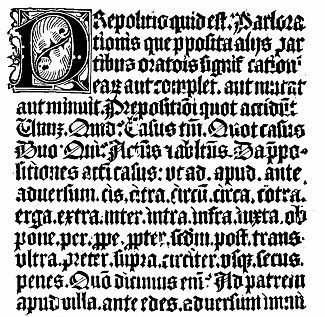 PRepositio quid est. Pars ora
tionis que pposita alijs par
tibus oratōis signific̄ cationē
eaꝝ aut complet. aut mutat
aut minuit. Prepositiōi quot accidūt
Unuꝫ. Quid: Casus tm̄. Quot casus
Duo Qui: Actūs ⁊ ablatūs. Da p̄po-
sitiones acti casus: vt ad. apud. ante
aduersum. cis. citra. circū. circa. cōtra.
erga. extra. inter. intra. infra. iuxta. ob
pone. per. ꝓpe. ꝓpter. scdm̄. post. trans
vltra. preter. supra. circiter. vsqꝫ. secus.
penes. Quō dicimus em̄: Ad patrem
apud villā. ante edes. aduersum inimi